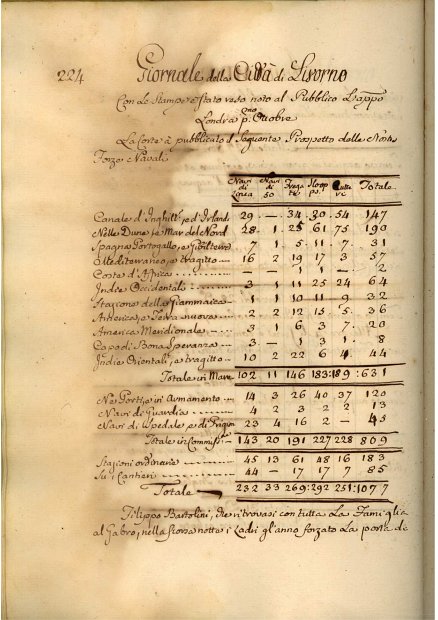 224
Giornale della Città di Livorno
Con Le Stampe è stato reso noto al Pubblico
Londra p.mo Ottobre
La Corte à pubblicato il Seguente Prospetto delle
Forze Navali
Navi di Linea Navi di 50 Frega te Sloop ps. Cutte re Totale
Canale d'Inghil., e d'Irland 29 — 34 30 54 147
Nelle Dune, e Mar del Nord 28 1 25 61 75 190
Spagna Portogallo, e 7 1 5 11 7 31
Mediterraneo, e tragitto 16 2 19 17 3 57
Coste d'Affrica — — 1 1 — 2
Indie Occidentali 3 1 11 25 24 64
Stazione della Giammaica 1 1 10 11 9 32
America, e Terra nuova 2 2 12 15 5 36
America Meridionale 3 1 6 3 7 20
Capo di Bona Speranza 3 — 1 3 1 8
Indie Orientali, e tragitto 10 2 22 6 4 44
Totale in Mare 102 11 146 183:189:631
Ne Porti, e in Armamento 14 3 26 40 37 120
Navi di Guardia 4 2 3 2 2 13
Navi di Spedale, e di 23 4 16 2 — 45
Totale in 143 20 191 227 228 809
Stazioni ordinarie 45 13 61 48 16 183
Su i Cantieri 44 — 17 17 7 85
Totale 232 33 269:292 251:1077
Filippo Bartolini, che ritrovasi con tutta La Famiglia
al Gabro, nella scorsa notte i Ladri gl'anno forzato La porta de